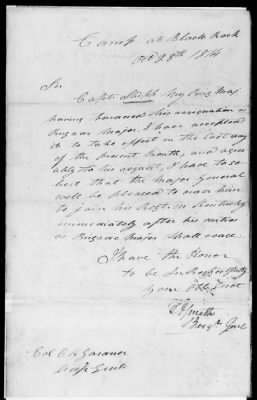 Camp at Black Rock
Oct 28th 1814
Sir
Capt. my Brig Maj
having tendered his resignation as
Brigade Major. I have accepted
it to take effect on the last day
of the present month, and agree
ably to his request, I have to so
licit that the Major General
will be pleased to order him
to join his Regt. in Kentucky
immediately after his duties
as Brigade Major shall cease.
I have the Honor
to be Sir Respectfully
Your Obt. Servt
T A Smith
Brigd. Genl
Col C K Gardner